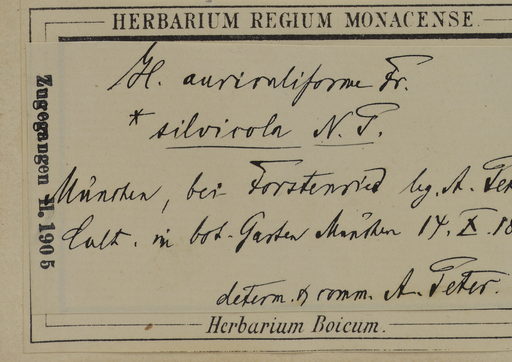 HERBARIUM REGIUM MONACENSE.
H. auriculiforme Fr.
* silvicola N. P.
München, bei Forstenried leg. A. Pet
Cult. in bot. Garten München 14. X. 18
determ. & comm. A. Peter.
Herbarium Boicum.
Zugegangen II. 1905